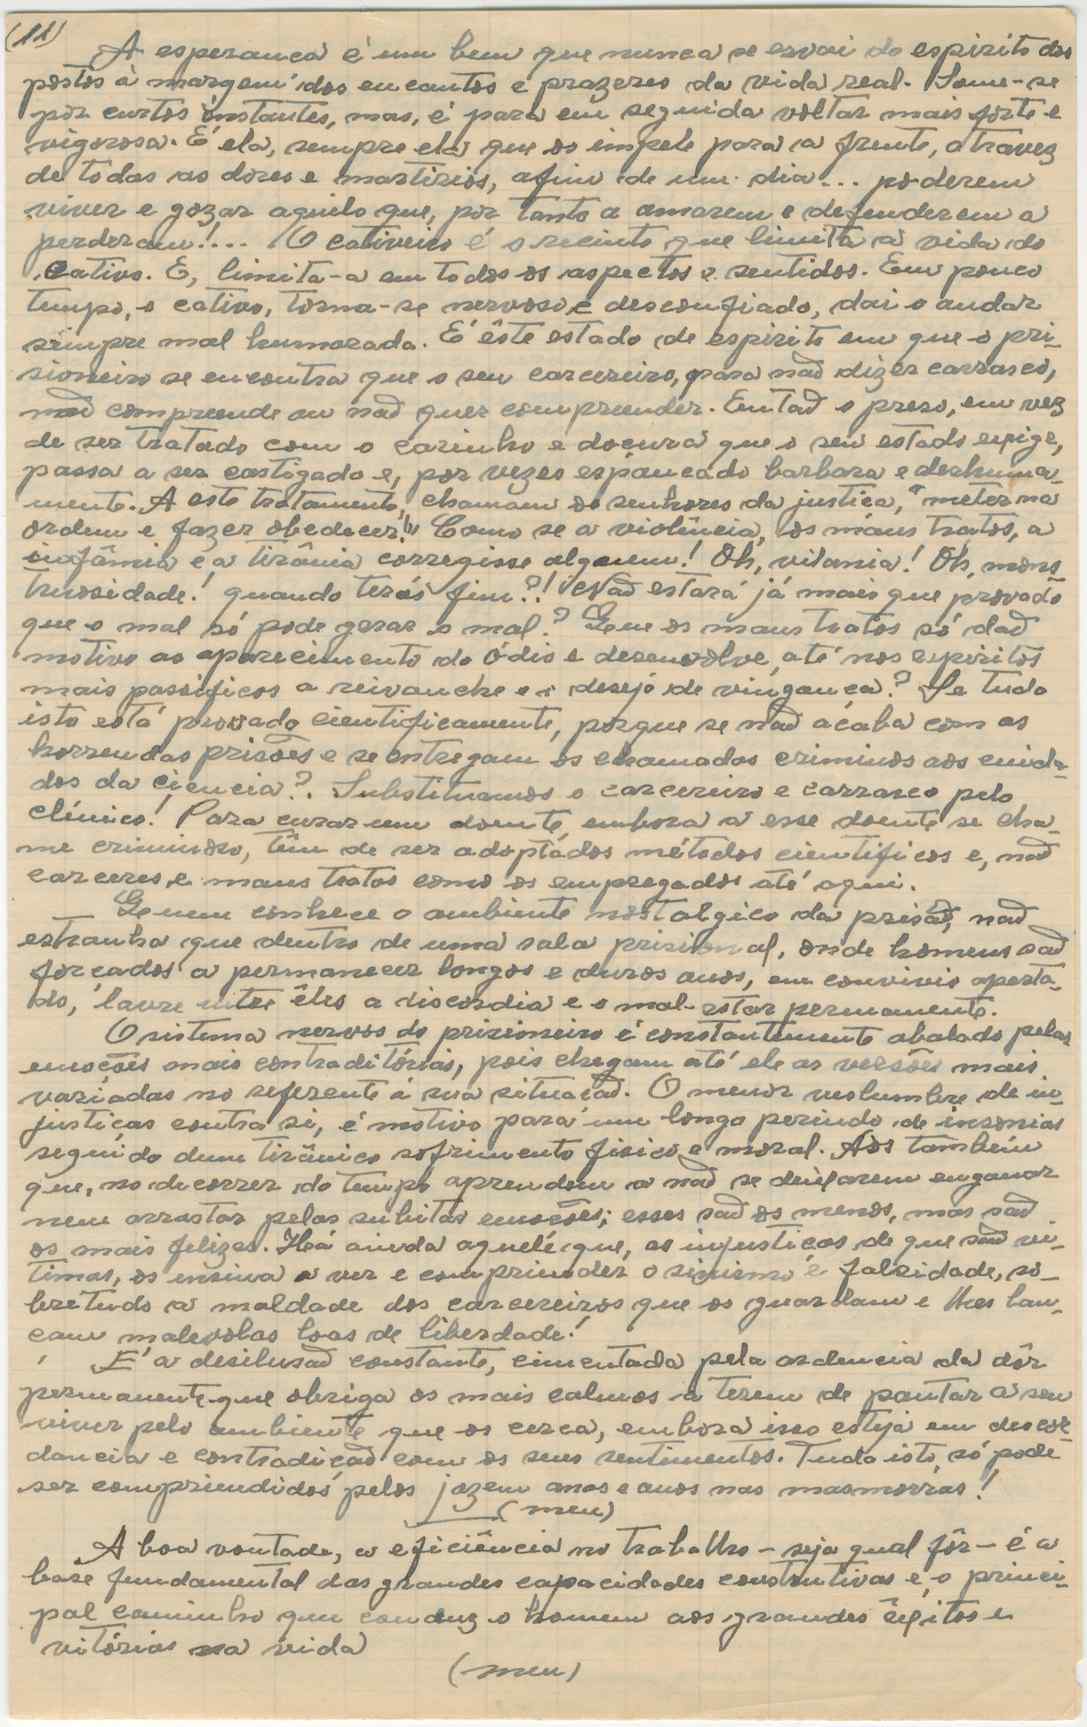 (11)
A esperança é um bem que nunca se esvai do espirito dos
postos á margem dos encantos e prazeres da vida real. Some-se
por curtos instantes, mas, é para em seguida voltar mais forte e
vigorosa. É ela, sempre ela que os impele para a frente, atravez
de todas as dores e martirios, afim de um dia... poderem
viver e gozar aquilo que, por tanto a amarem e defenderem a
perderam!... O cativeiro é o recinto que limita a vida do
cativo. E, limita-a em todos os aspectos e sentidos. Em pouco
tempo, o cativo, torna-se nervoso e desconfiado, dai o andar
sempre mal humorado. É êste estado de espirito em que o pri-
sioneiro se encontra que o seu carcereiro, para naõ dizer carrasco,
naõ compreende ou naõ quer compreender. Entaõ o preso, em vez
de ser tratado com o carinho e doçura que o seu estado exige,
passa a ser castigado e, por vezes espancado barbara e deshuma-
mente. A este tratamento, chamam os senhores da justiça, "meter na
ordem e fazer obedecer!" Como se a violência, os maus tratos, a
infâmia e a tirânia corregisse alguem! Oh, vilania! Oh, mons
truosidade! quando terás fim?! Naõ estará já mais que provado
que o mal só pode gerar o mal? Que os maus tratos só daõ
motivo ao aparecimento do ódio e desenvolve, até nos espiritos
mais passificos a reivanche e o desejo de vingança? Se tudo
isto está provado cientificamente, porque se naõ acaba com as
horrendas prisões e se entregam os chamados criminos aos cuida-
dos da ciencia?. Substituamos o carcereiro e carrasco pelo
clínico! Para curar um doente, embora a esse doente se cha-
me criminoso, têm de ser adoptados métodos cientificos e, naõ
carceres, e maus tratos como os empregados até aqui.
Quem conhece o ambiente nostalgico da prisaõ, naõ
estranha que dentro de uma sala prisional, onde homens saõ
forçados a permanecer longos e duros anos, em convivio aperta-
do, lavre entre êles a discordia e o mal-estar permanente.
O sistema nervoso do prisioneiro é constantemente abalado pelas
emoções mais contraditórias, pois chegam até ele as versões mais
variadas no referente á sua situaçaõ. O menor veslumbre de in-
justiças contra si, é motivo para um longo periodo de insonias
seguido dum tirânico sofrimento fisico e moral. Aos tambem
que, no decorrer do tempo aprendem a naõ se deixarem enganar
nem arrastar pelas subitas emoções; esses saõ os menos, mas saõ
os mais felizes. Há ainda aquele que, as injustiças de que saõ vi-
timas, os ensina a ver e comprinder o sinismo e falsidade, so-
bretudo a maldade dos carcereiros que os guardam e lhes lan-
çam malevolas loas de liberdade!
É a desilusaõ constante, cimentada pela ardencia da dôr
permanente que obriga os mais calmos a terem de pautar a seu
viver pelo ambiente que os cerca, embora isso esteja em descor-
dancia e contradiçaõ com os seus sentimentos. Tudo isto, só pode
ser comprindidos pelos jazem anos e anos nas masmorras!
(meu)
A boa vontade, a eficiência no trabalho - seja qual fôr - é a
base fundamental das grandes capacidades construtivas e, o princi-
pal caminho que conduz o homem aos grandes êxitos e
vitórias na vida
(meu)